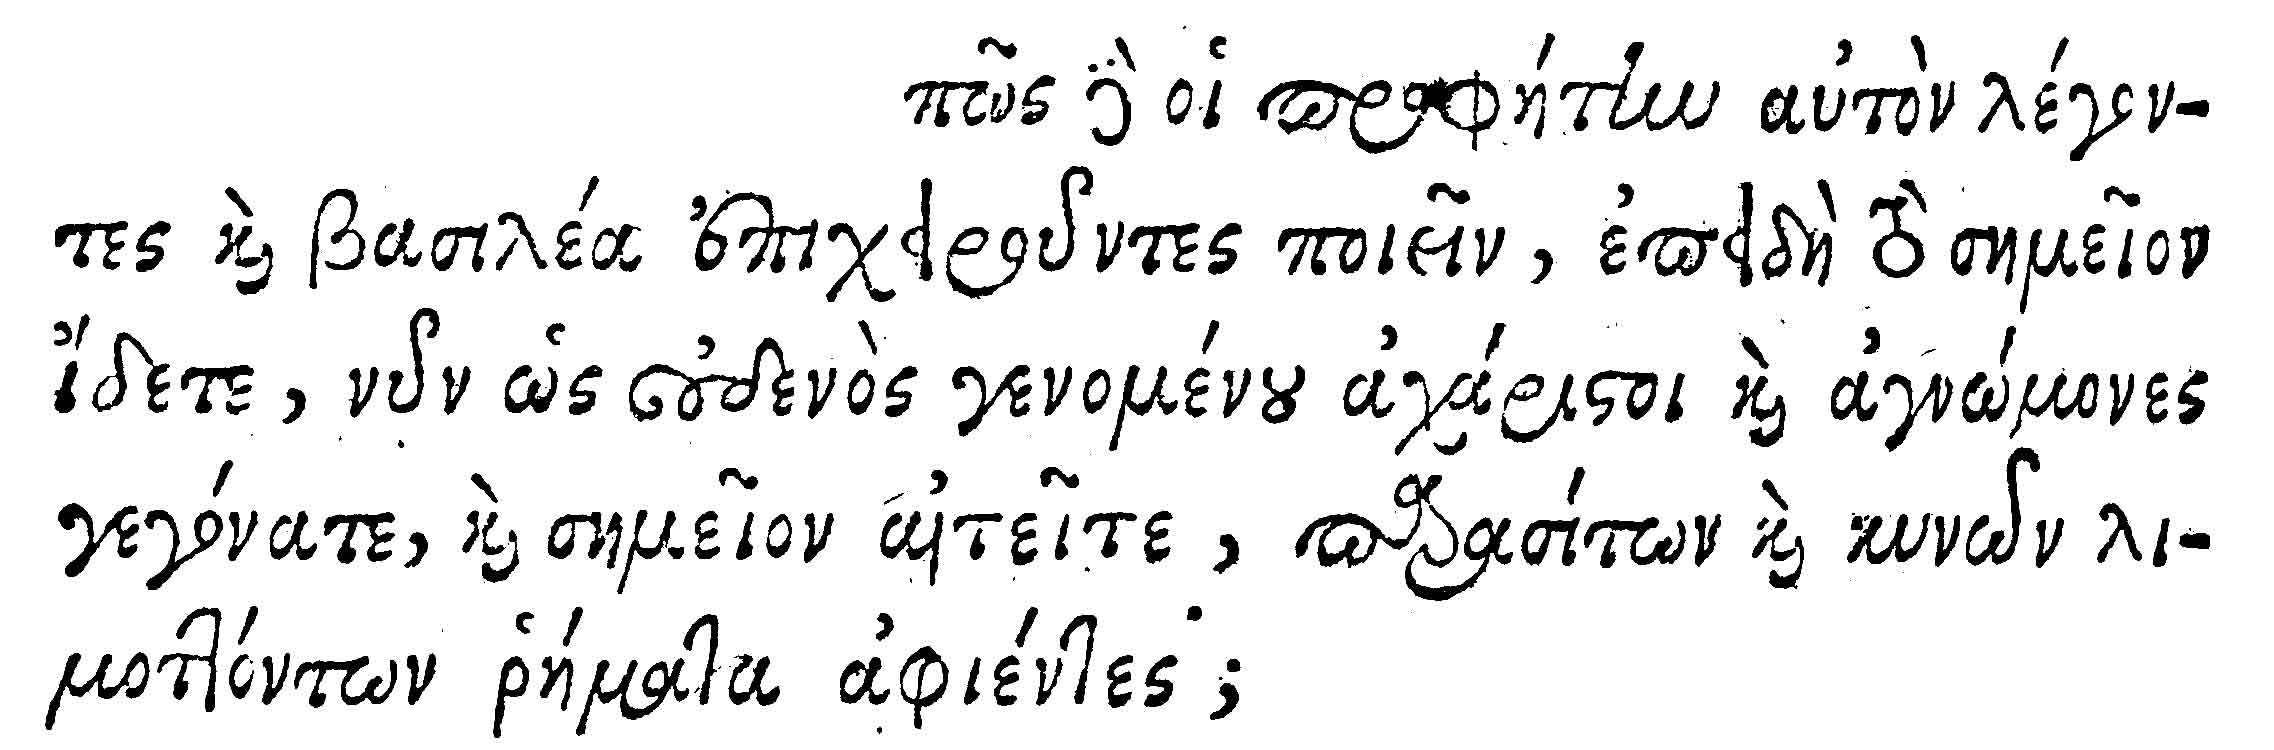 πῶς δὲ οἱ προφήτην αὐτὸν λέγον-
τες καὶ βασιλέα ἐπιχειροῦντες ποιεῖν, ἐπειδὴ τὸ σημεῖον
ἴδετε, νῦν ὡς οὐδενὸς γενομένου ἀχάριστοι καὶ ἀγνώμονες
γεγόνατε, καὶ σημεῖον αἰτεῖτε, παρασίτων καὶ κυνῶν λι-
μοττόντων ῥήματα ἀφιέντες;